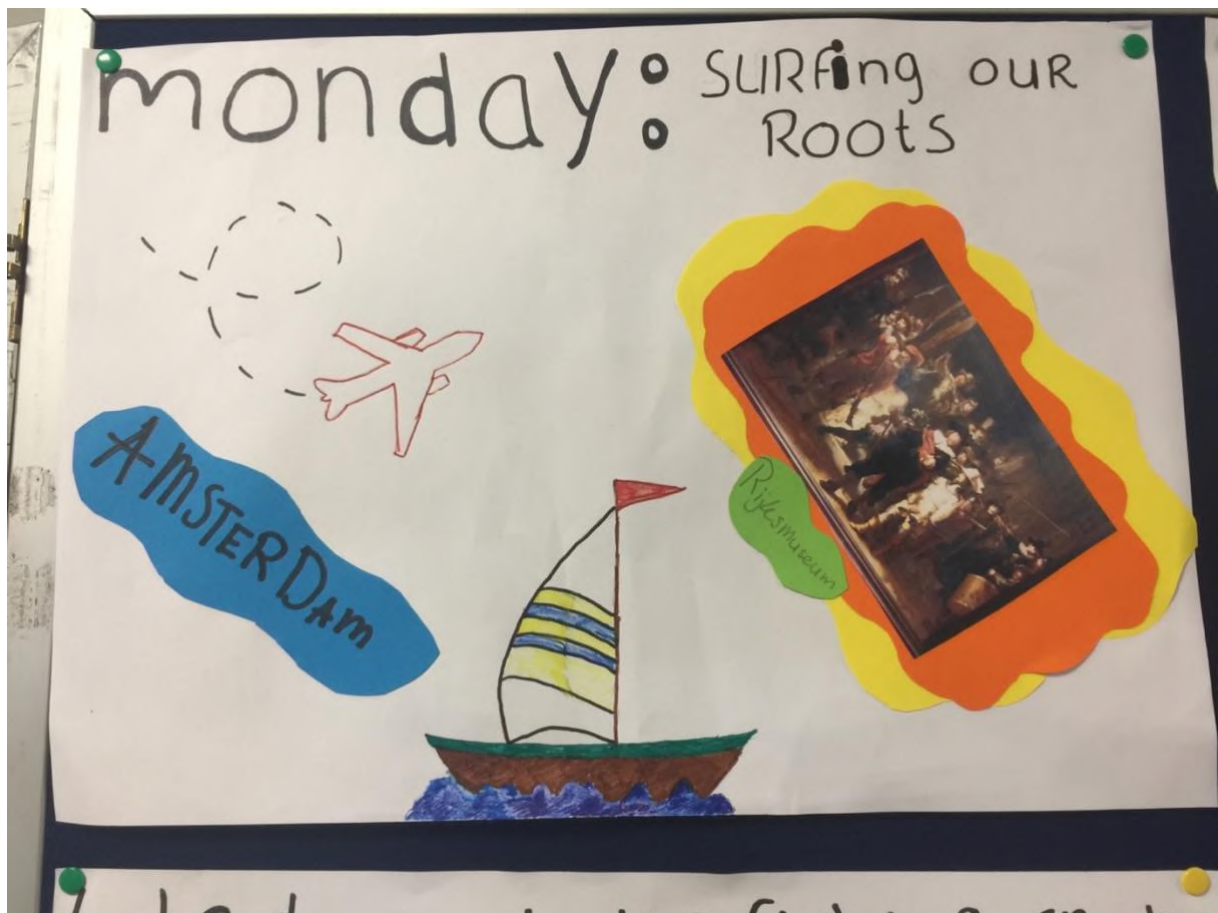 monday: SURfing OUR
ROOts
AMSTERDAm
Rijksmuseum